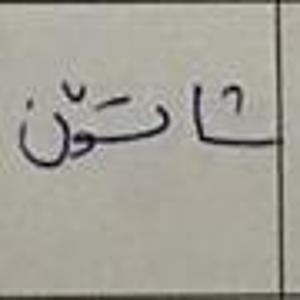 شاتوّن